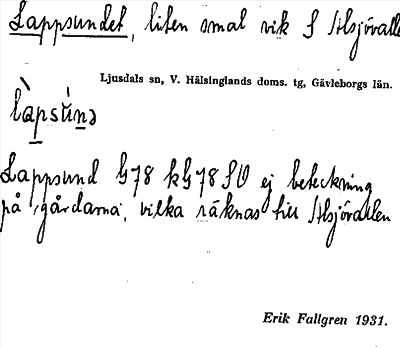 Lappsundet, liten smal vik S Ilsjövalle
Ljusdals sn, V. Hälsinglands doms. tg, Gävleborgs län.
làpsúnə
Lappsund G78 kG78 SV ej beteckning
på gårdarna, vilka räknas till Ilsjövallen
Erik Fallgren 1931.